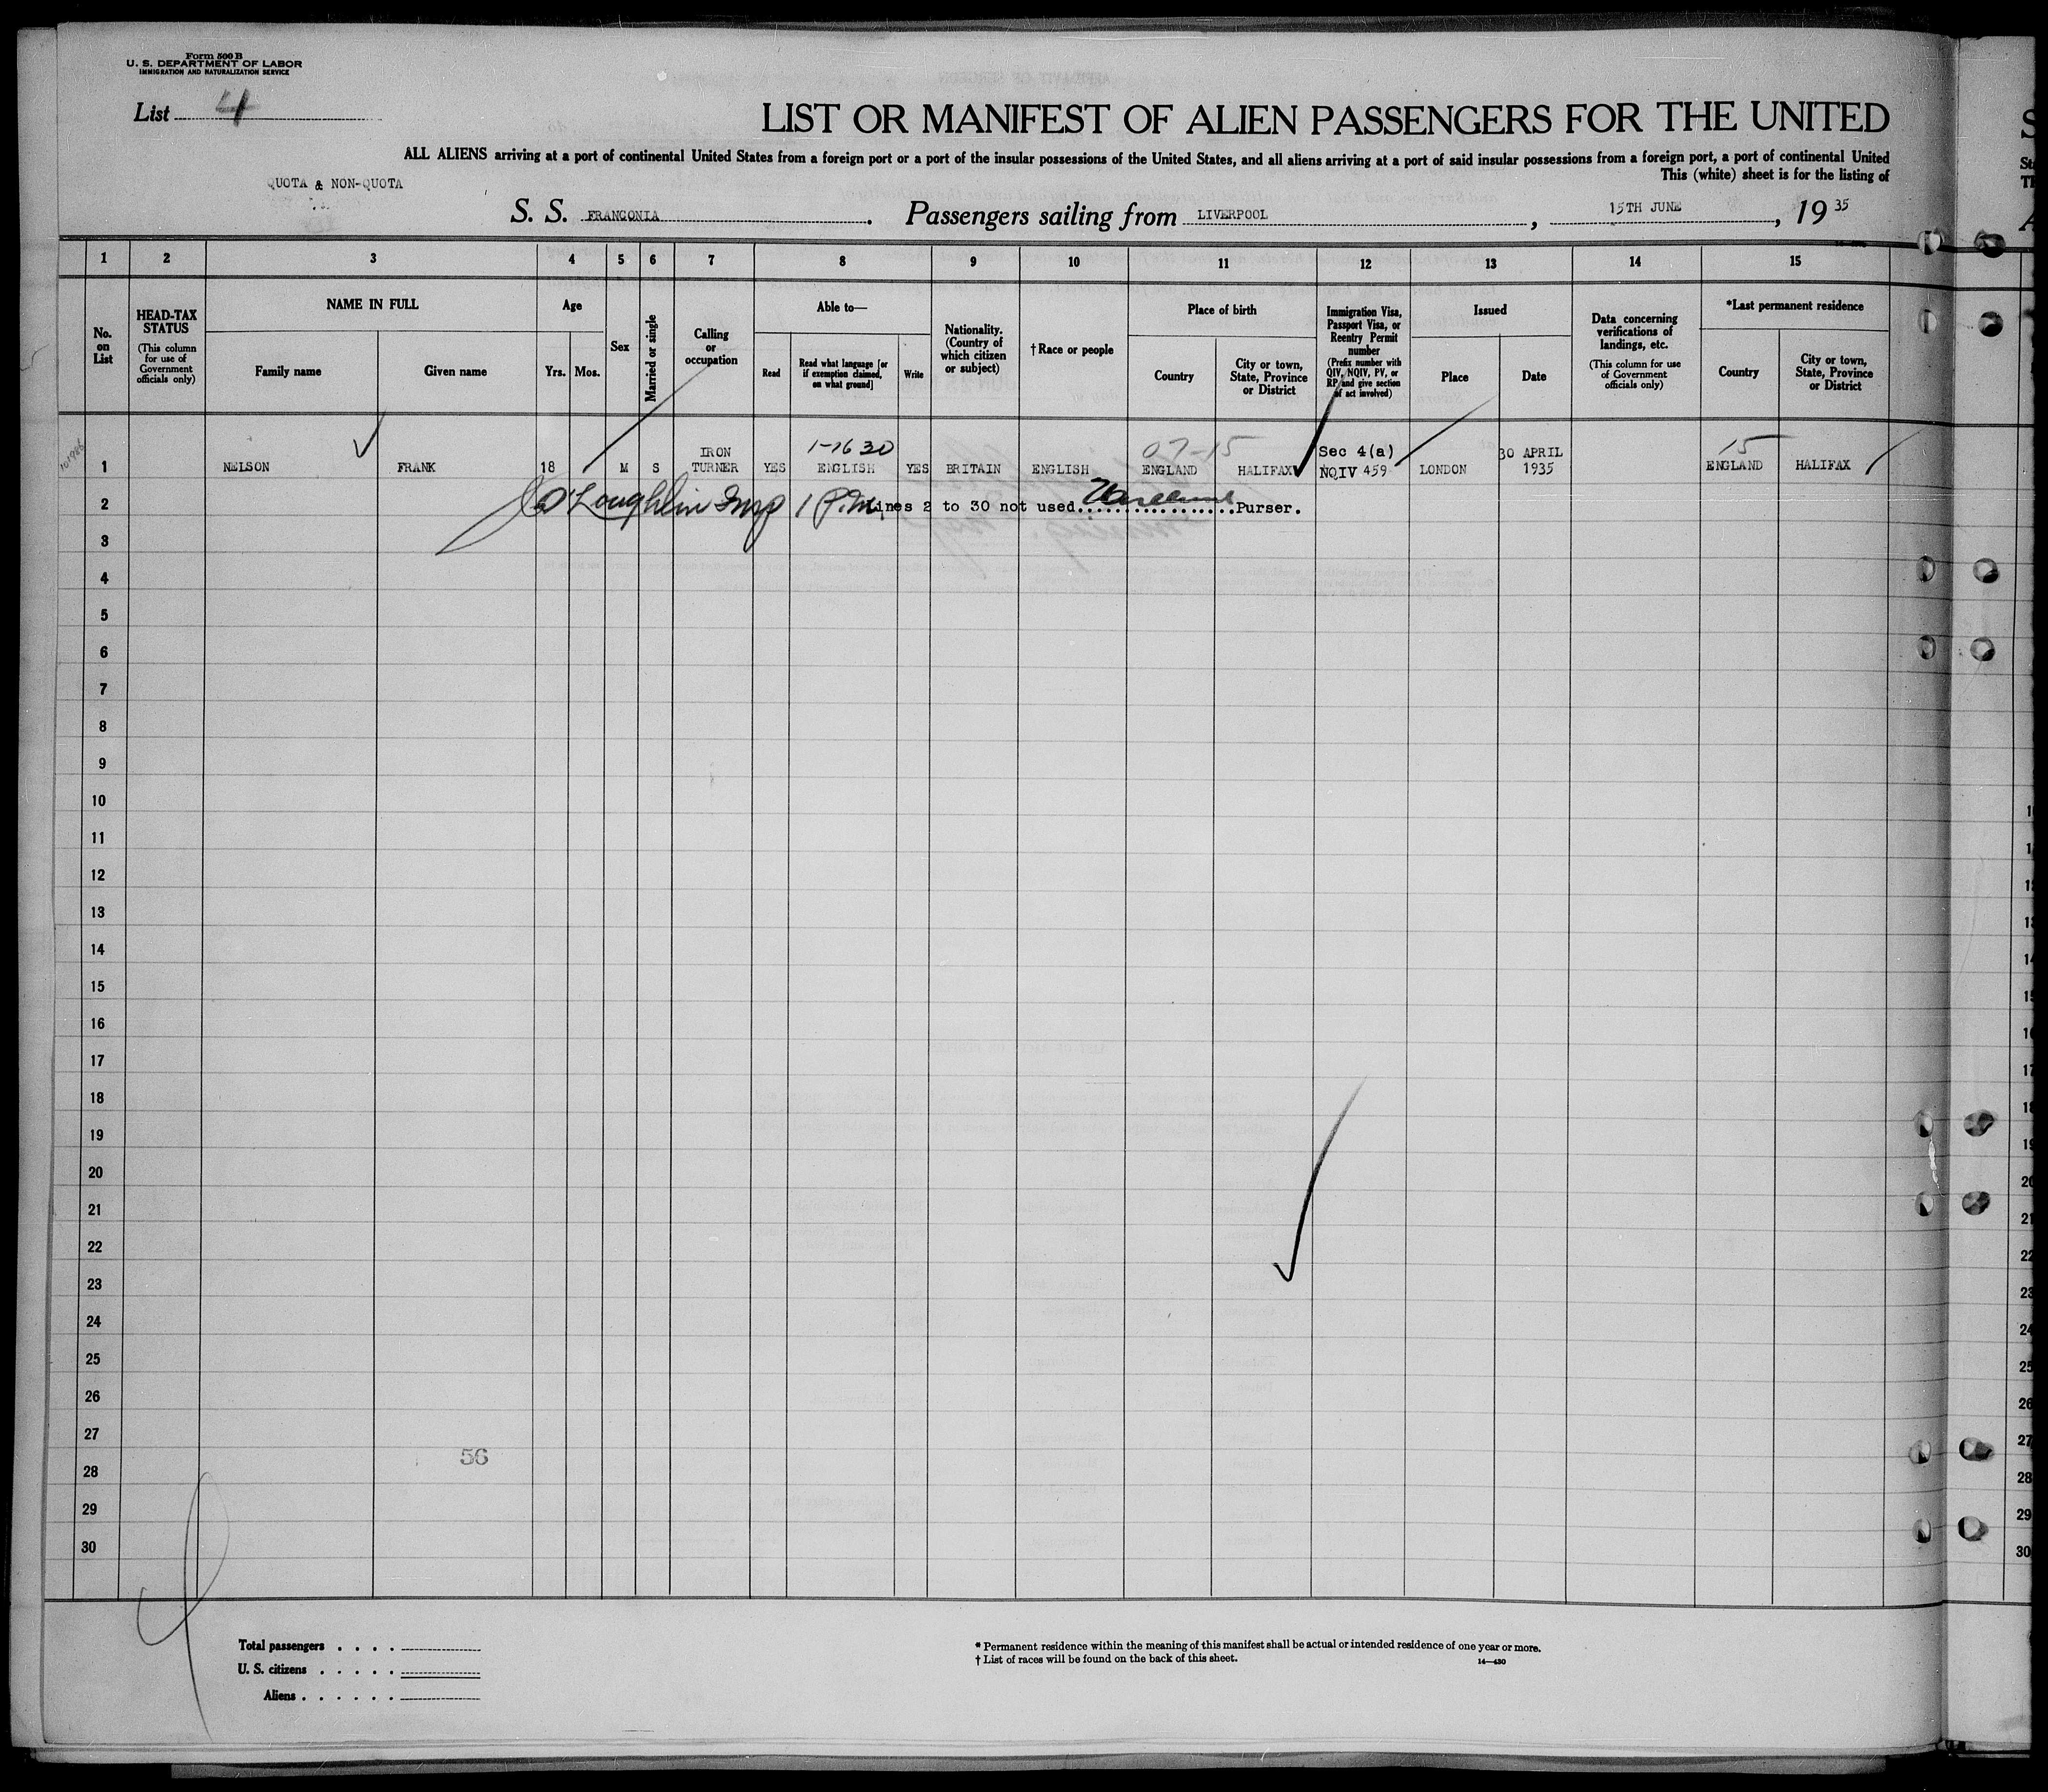 Form 500 B
U. S. DEPARTMENT OF LABOR
IMMIGRATION AND NATURALIZATION SERVICE
List 4
LIST OR MANIFEST OF ALIEN PASSENGERS FOR THE UNITED
ALL ALIENS arriving at a port of continental United States from a foreign port or a port of the insular possessions of the United States, and all aliens arriving at a port of said insular possessions from a foreign port, a port of continental United
This (white) sheet is for the listing of
QUOTA & NON-QUOTA
S. S. FRANCONIA. Passengers sailing from LIVERPOOL, 15TH JUNE, 19 35
1 2 3 4 5 6 7 8 9 10 11 12 13 14 15
No. on List
HEAD-TAX STATUS
(This column for use of Government officials only)
NAME IN FULL
Family name
Given name
Age
Yrs. Mos.
Sex
Married or single
Calling or occupation
Able to—
Read
Read what language [or if exemption claimed, on what ground]
Write
Nationality. (Country of which citizen or subject)
† Race or people
Place of birth
Country
City or town, State, Province or District
Immigration Visa, Passport Visa, or Reentry Permit number
(Prefix number with QIV, NQIV, PV, or RP and give section of act involved)
Issued
Place
Date
Data concerning verifications of landings, etc.
(This column for use of Government officials only)
*Last permanent residence
Country
City or town, State, Province or District
1-1630 07-15 15
1 NELSON FRANK 18 M S IRON TURNER YES ENGLISH YES BRITAIN ENGLISH ENGLAND HALIFAX Sec 4(a) NQIV 459 LONDON 30 APRIL 1935 ENGLAND HALIFAX
2 O'Loughlin Insp 1 P.M. Lines 2 to 30 not used Purser.
3
4
5
6
7
8
9
10
11
12
13
14
15
16
17
18
19
20
21
22
23
24
25
26
27
56
28
29
30
Total passengers
U. S. citizens
Aliens
* Permanent residence within the meaning of this manifest shall be actual or intended residence of one year or more.
† List of races will be found on the back of this sheet.
14—430